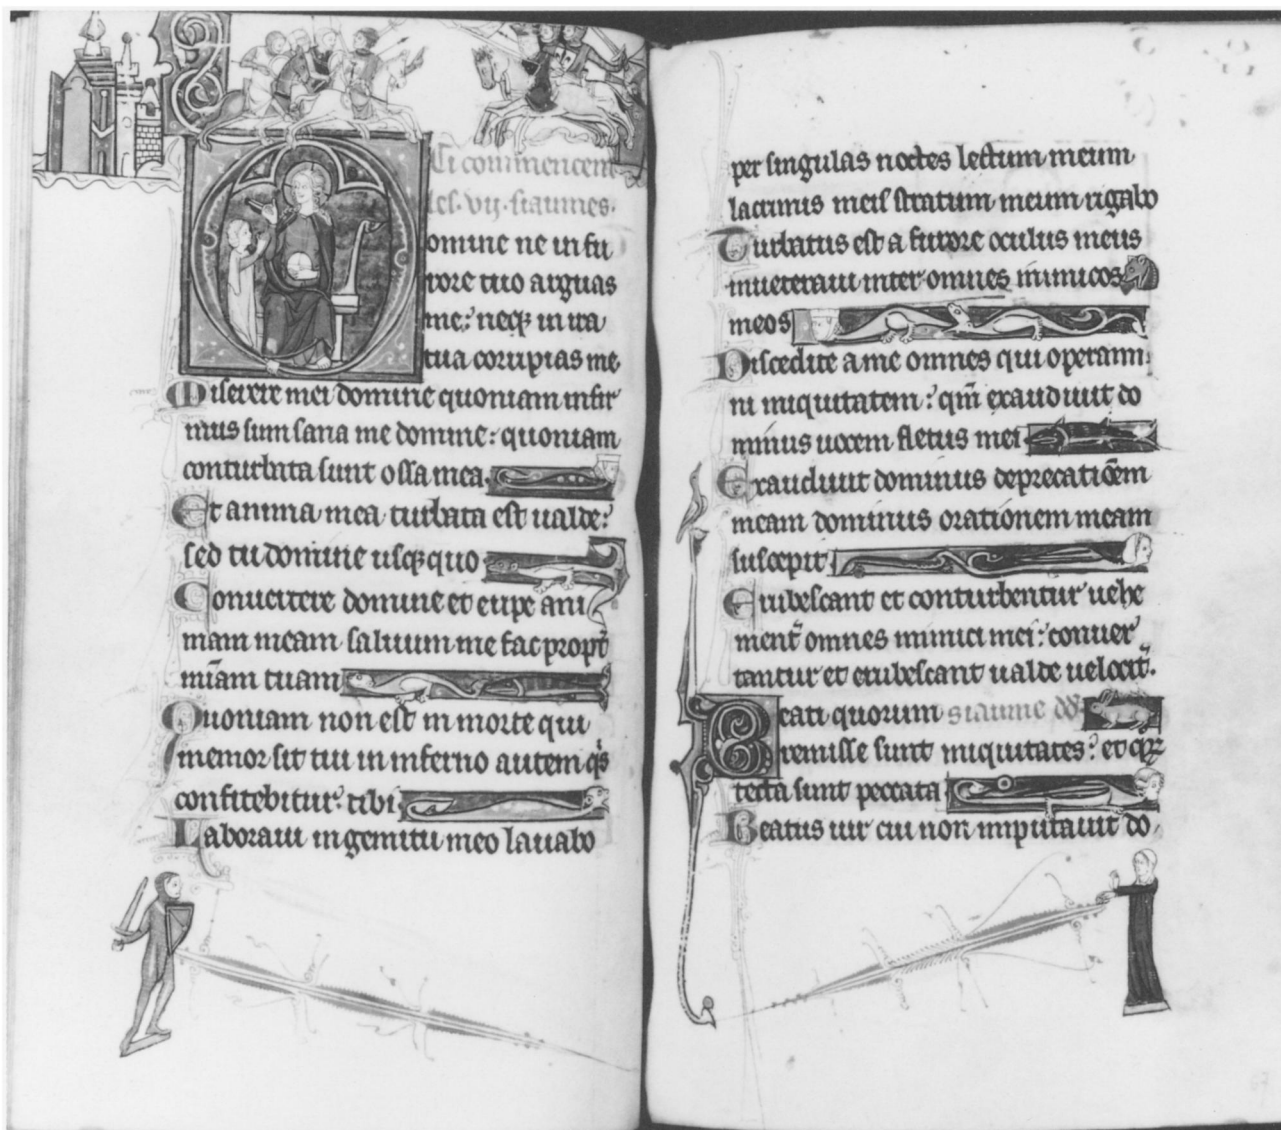 Ci commencent
les .vij. siaumes.
omine ne in fu
rore tuo arguas
me: neq; in ira
tua corripias me
Miserere mei domine quoniam infir
mus sum sana me domine: quoniam
conturbata sunt ossa mea.
Et anima mea turbata est ualde:
sed tu domine usq; quo
Conuertere domine et eripe ani
mam meam saluum me fac propt̃
mĩam tuam
Quoniam non est in morte qui
memor sit tui in inferno autem q̾s
confitebitur tibi
Laboraui in gemitu meo lauabo
per singulas noctes lectum meum
lacrimis meis stratum meum rigabo
Turbatus est a furore oculus meus
inueteraui inter omnes inimicos
meos
Discedite a me omnes qui operami
ni iniquitatem: qm̃ exaudiuit do
minus uocem fletus mei
Exaudiuit dominus deprecatiõem
meam dominus orationem meam
suscepit
Erubescant et conturbentur uehe
ment̃ omnes inimici mei: conuer
tantur et erubescant ualde uelocit̃.
Beati quorum siaume dd
remisse sunt iniquitates: et quoꝝ
tecta sunt peccata
Beatus uir cui non imputauit do
67